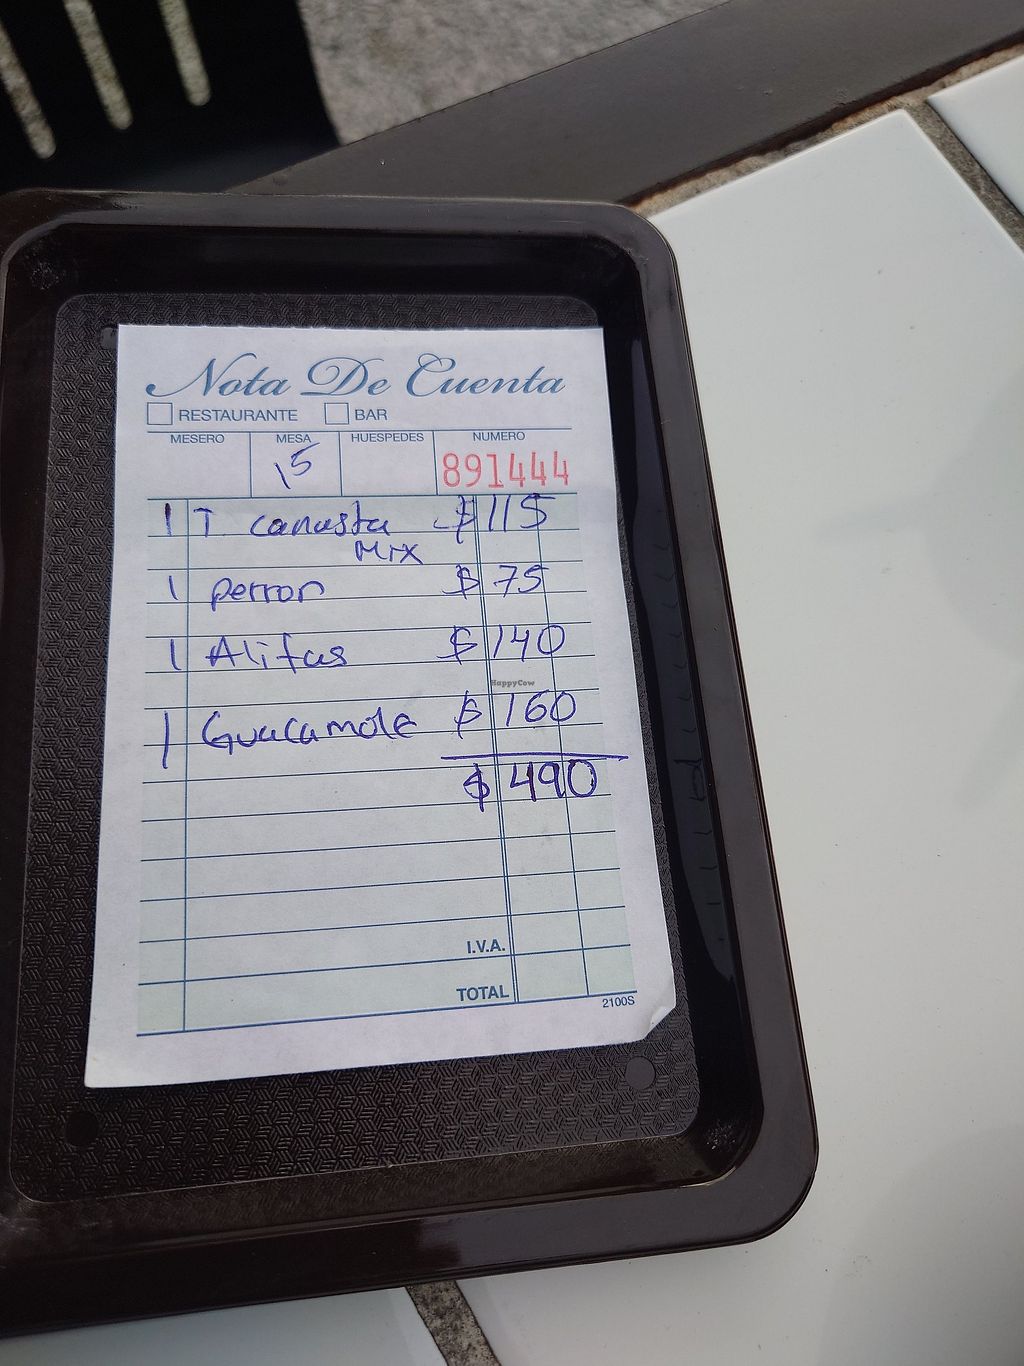 Nota De Cuenta
RESTAURANTE BAR
MESERO MESA HUESPEDES NUMERO
15 891444
1 T. canasta $115
Mix
1 perron $75
1 Alitas $140
HappyCow
1 Guacamole $160
$490
I.V.A.
TOTAL
2100S